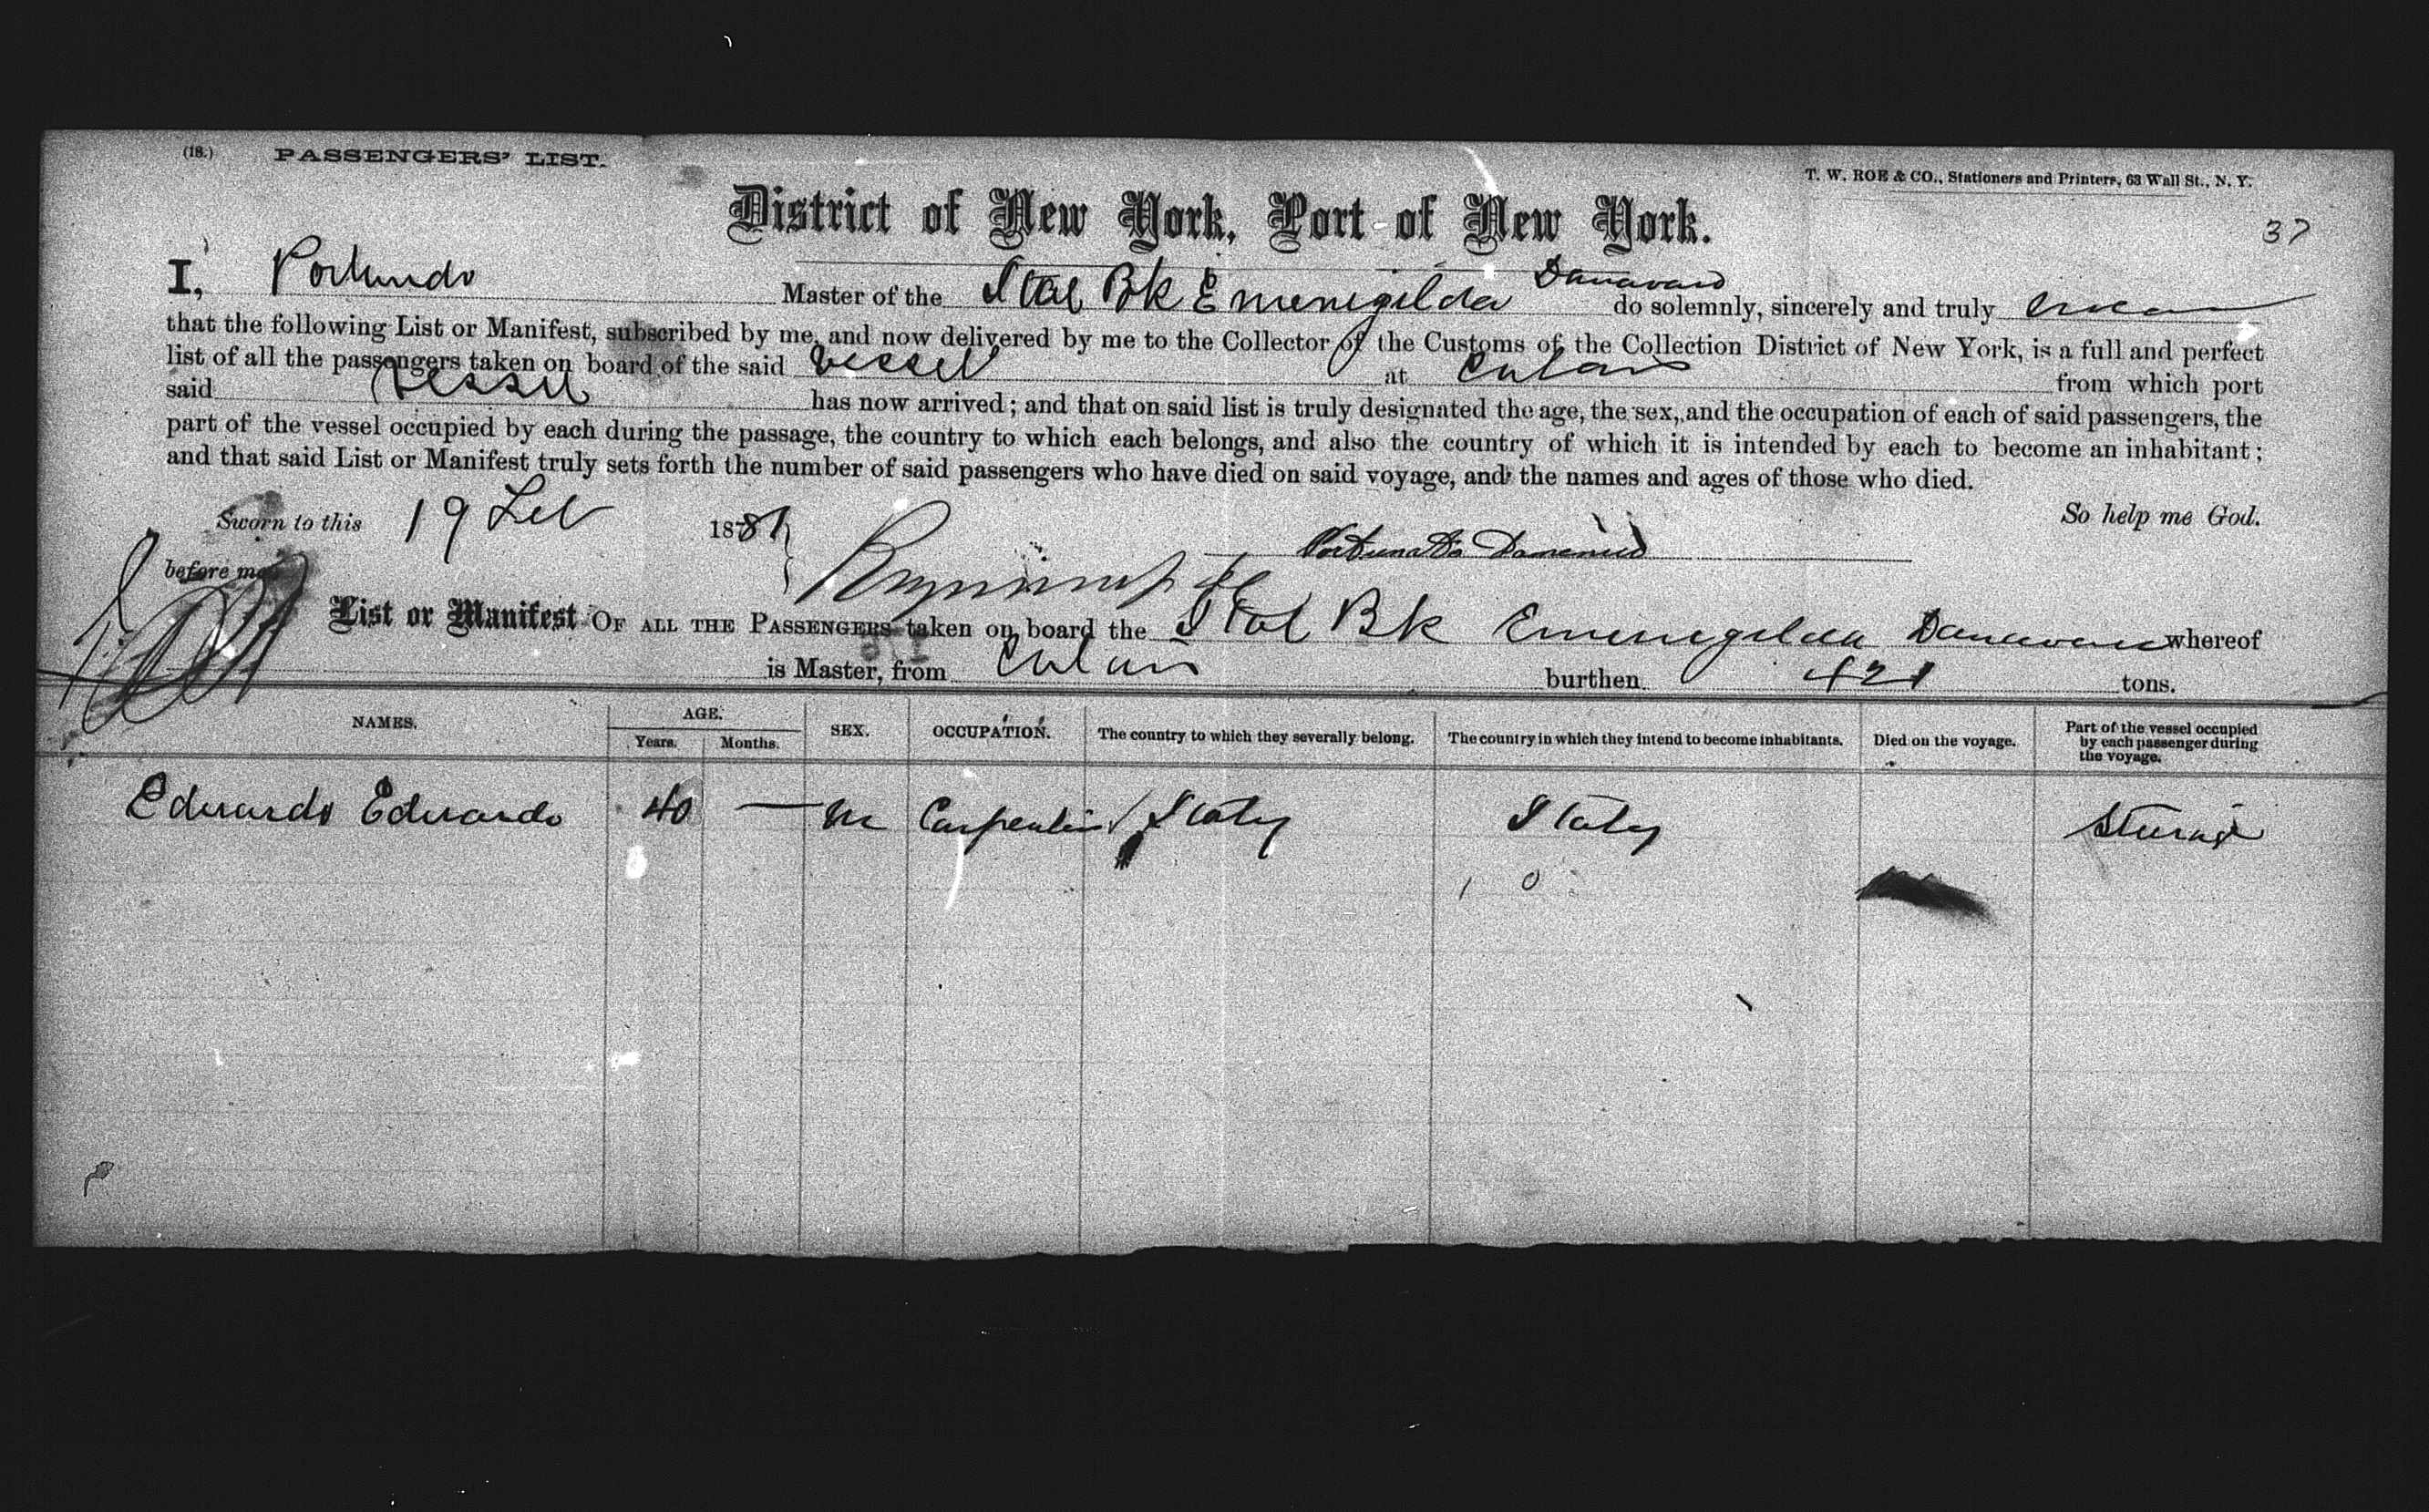 (18.) PASSENGERS' LIST.
T. W. ROE & CO., Stationers and Printers, 63 Wall St., N. Y.
District of New York, Port of New York.
37
I, Master of the Ital Bk Emenegilda do solemnly, sincerely and truly swear
that the following List or Manifest, subscribed by me, and now delivered by me to the Collector of the Customs of the Collection District of New York, is a full and perfect
list of all the passengers taken on board of the said vessel at from which port
said vessel has now arrived; and that on said list is truly designated the age, the sex, and the occupation of each of said passengers, the
part of the vessel occupied by each during the passage, the country to which each belongs, and also the country of which it is intended by each to become an inhabitant;
and that said List or Manifest truly sets forth the number of said passengers who have died on said voyage, and the names and ages of those who died.
Sworn to this 19 Feb 1881 So help me God.
before me
List or Manifest OF ALL THE PASSENGERS taken on board the Ital Bk Emenegilda whereof
is Master, from burthen 421 tons.
NAMES. AGE. Years. Months. SEX. OCCUPATION. The country to which they severally belong. The country in which they intend to become inhabitants. Died on the voyage. Part of the vessel occupied by each passenger during the voyage.
Eduardo Eduardo 40 — m Carpenter Italy Italy Steerage
1 0